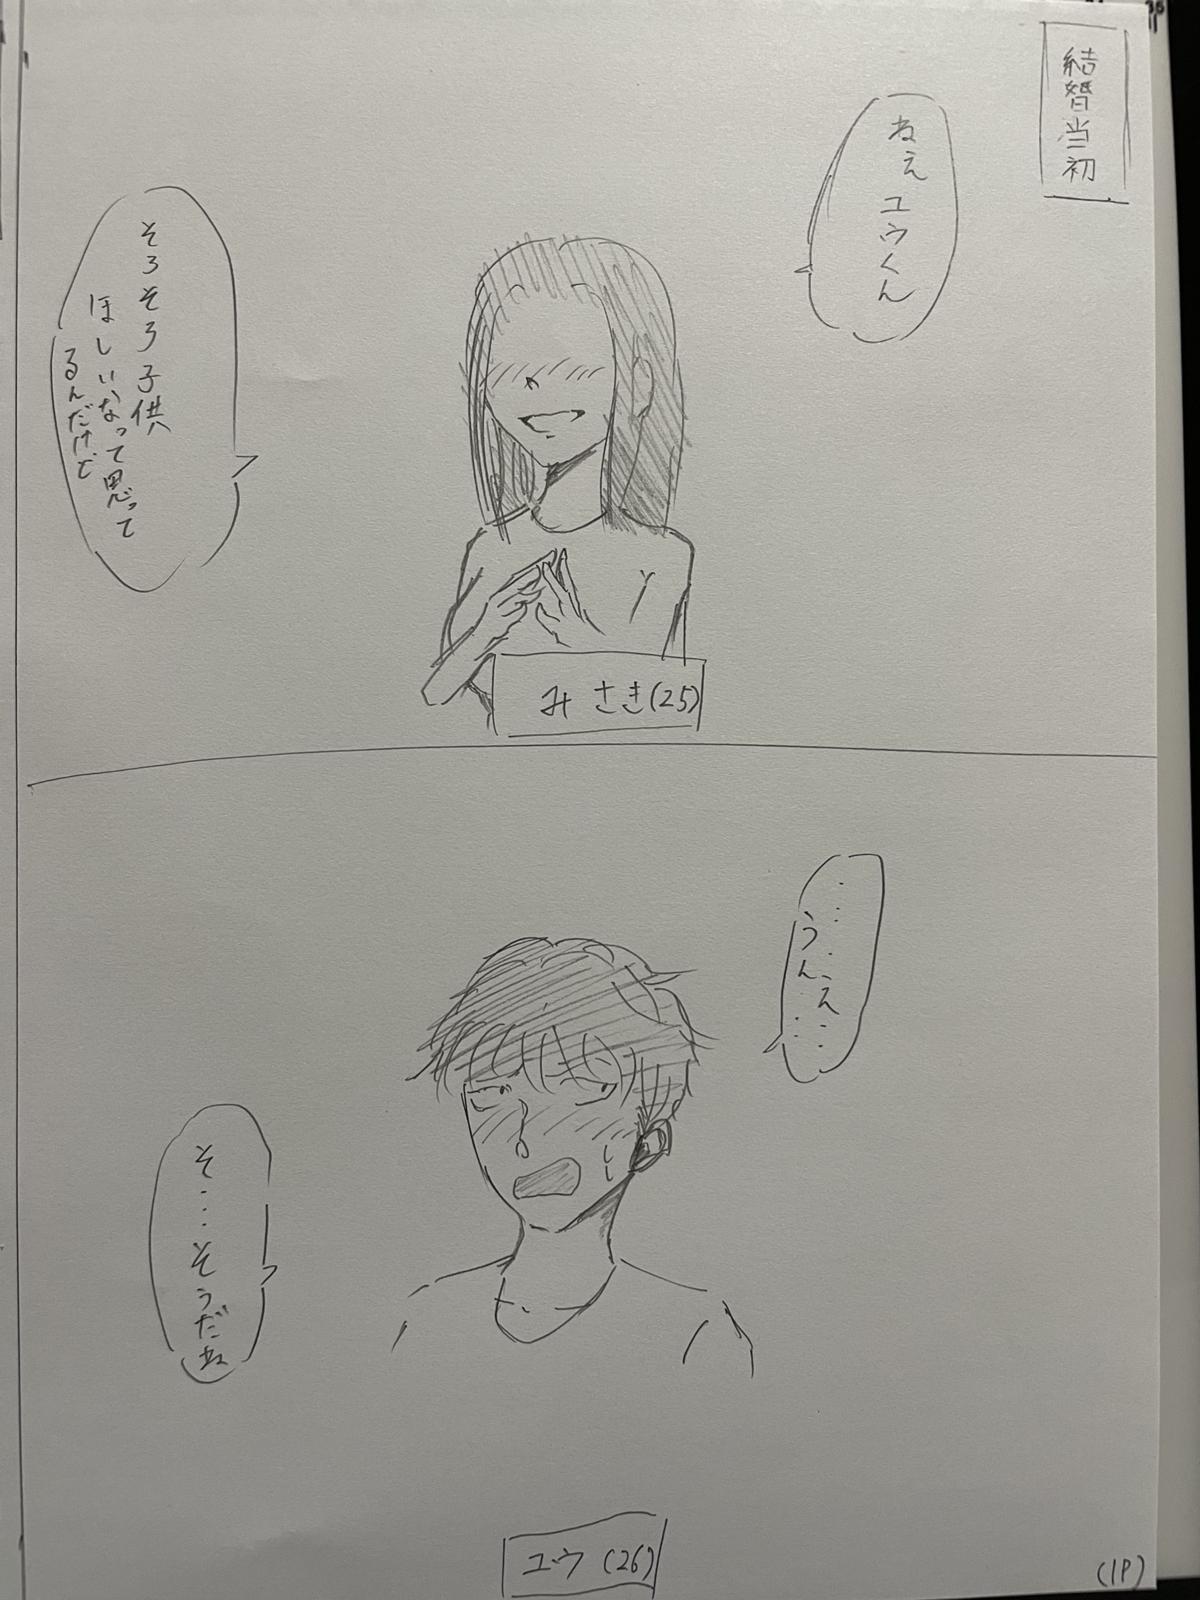 結婚当初
ねえユウくん
そろそろ子供
ほしいなって思って
るんだけど
みさき(25)
……え……
うん……
そ…そうだね
ユウ(26)
(1P)